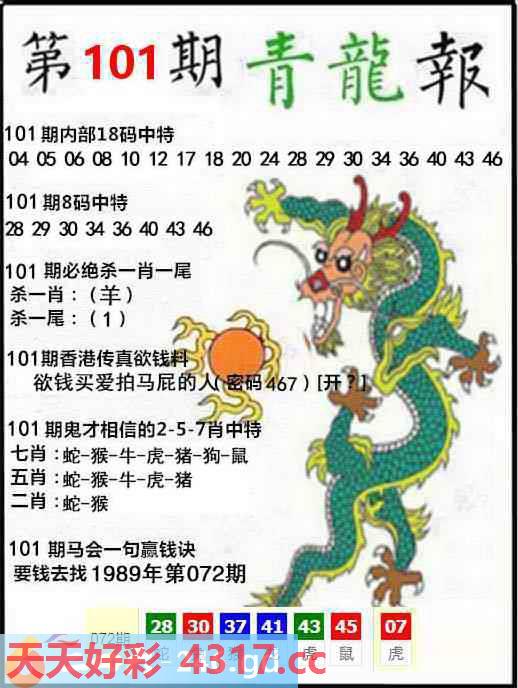 第101期青龍報
101期内部18码中特
04 05 06 08 10 12 17 18 20 24 28 29 30 34 36 40 43 46
101期8码中特
28 29 30 34 36 40 43 46
101期必绝杀一肖一尾
杀一肖:(羊)
杀一尾:(1)
101期香港传真欲钱料
欲钱买爱拍马屁的人(密码467)[开?]
101期鬼才相信的2-5-7肖中特
七肖:蛇-猴-牛-虎-猪-狗-鼠
五肖:蛇-猴-牛-虎-猪
二肖:蛇-猴
101期马会一句赢钱诀
要钱去找1989年第072期
072期 28 30 37 41 43 45 07
蛇 虎 鼠 虎
天天好彩 4317.cc